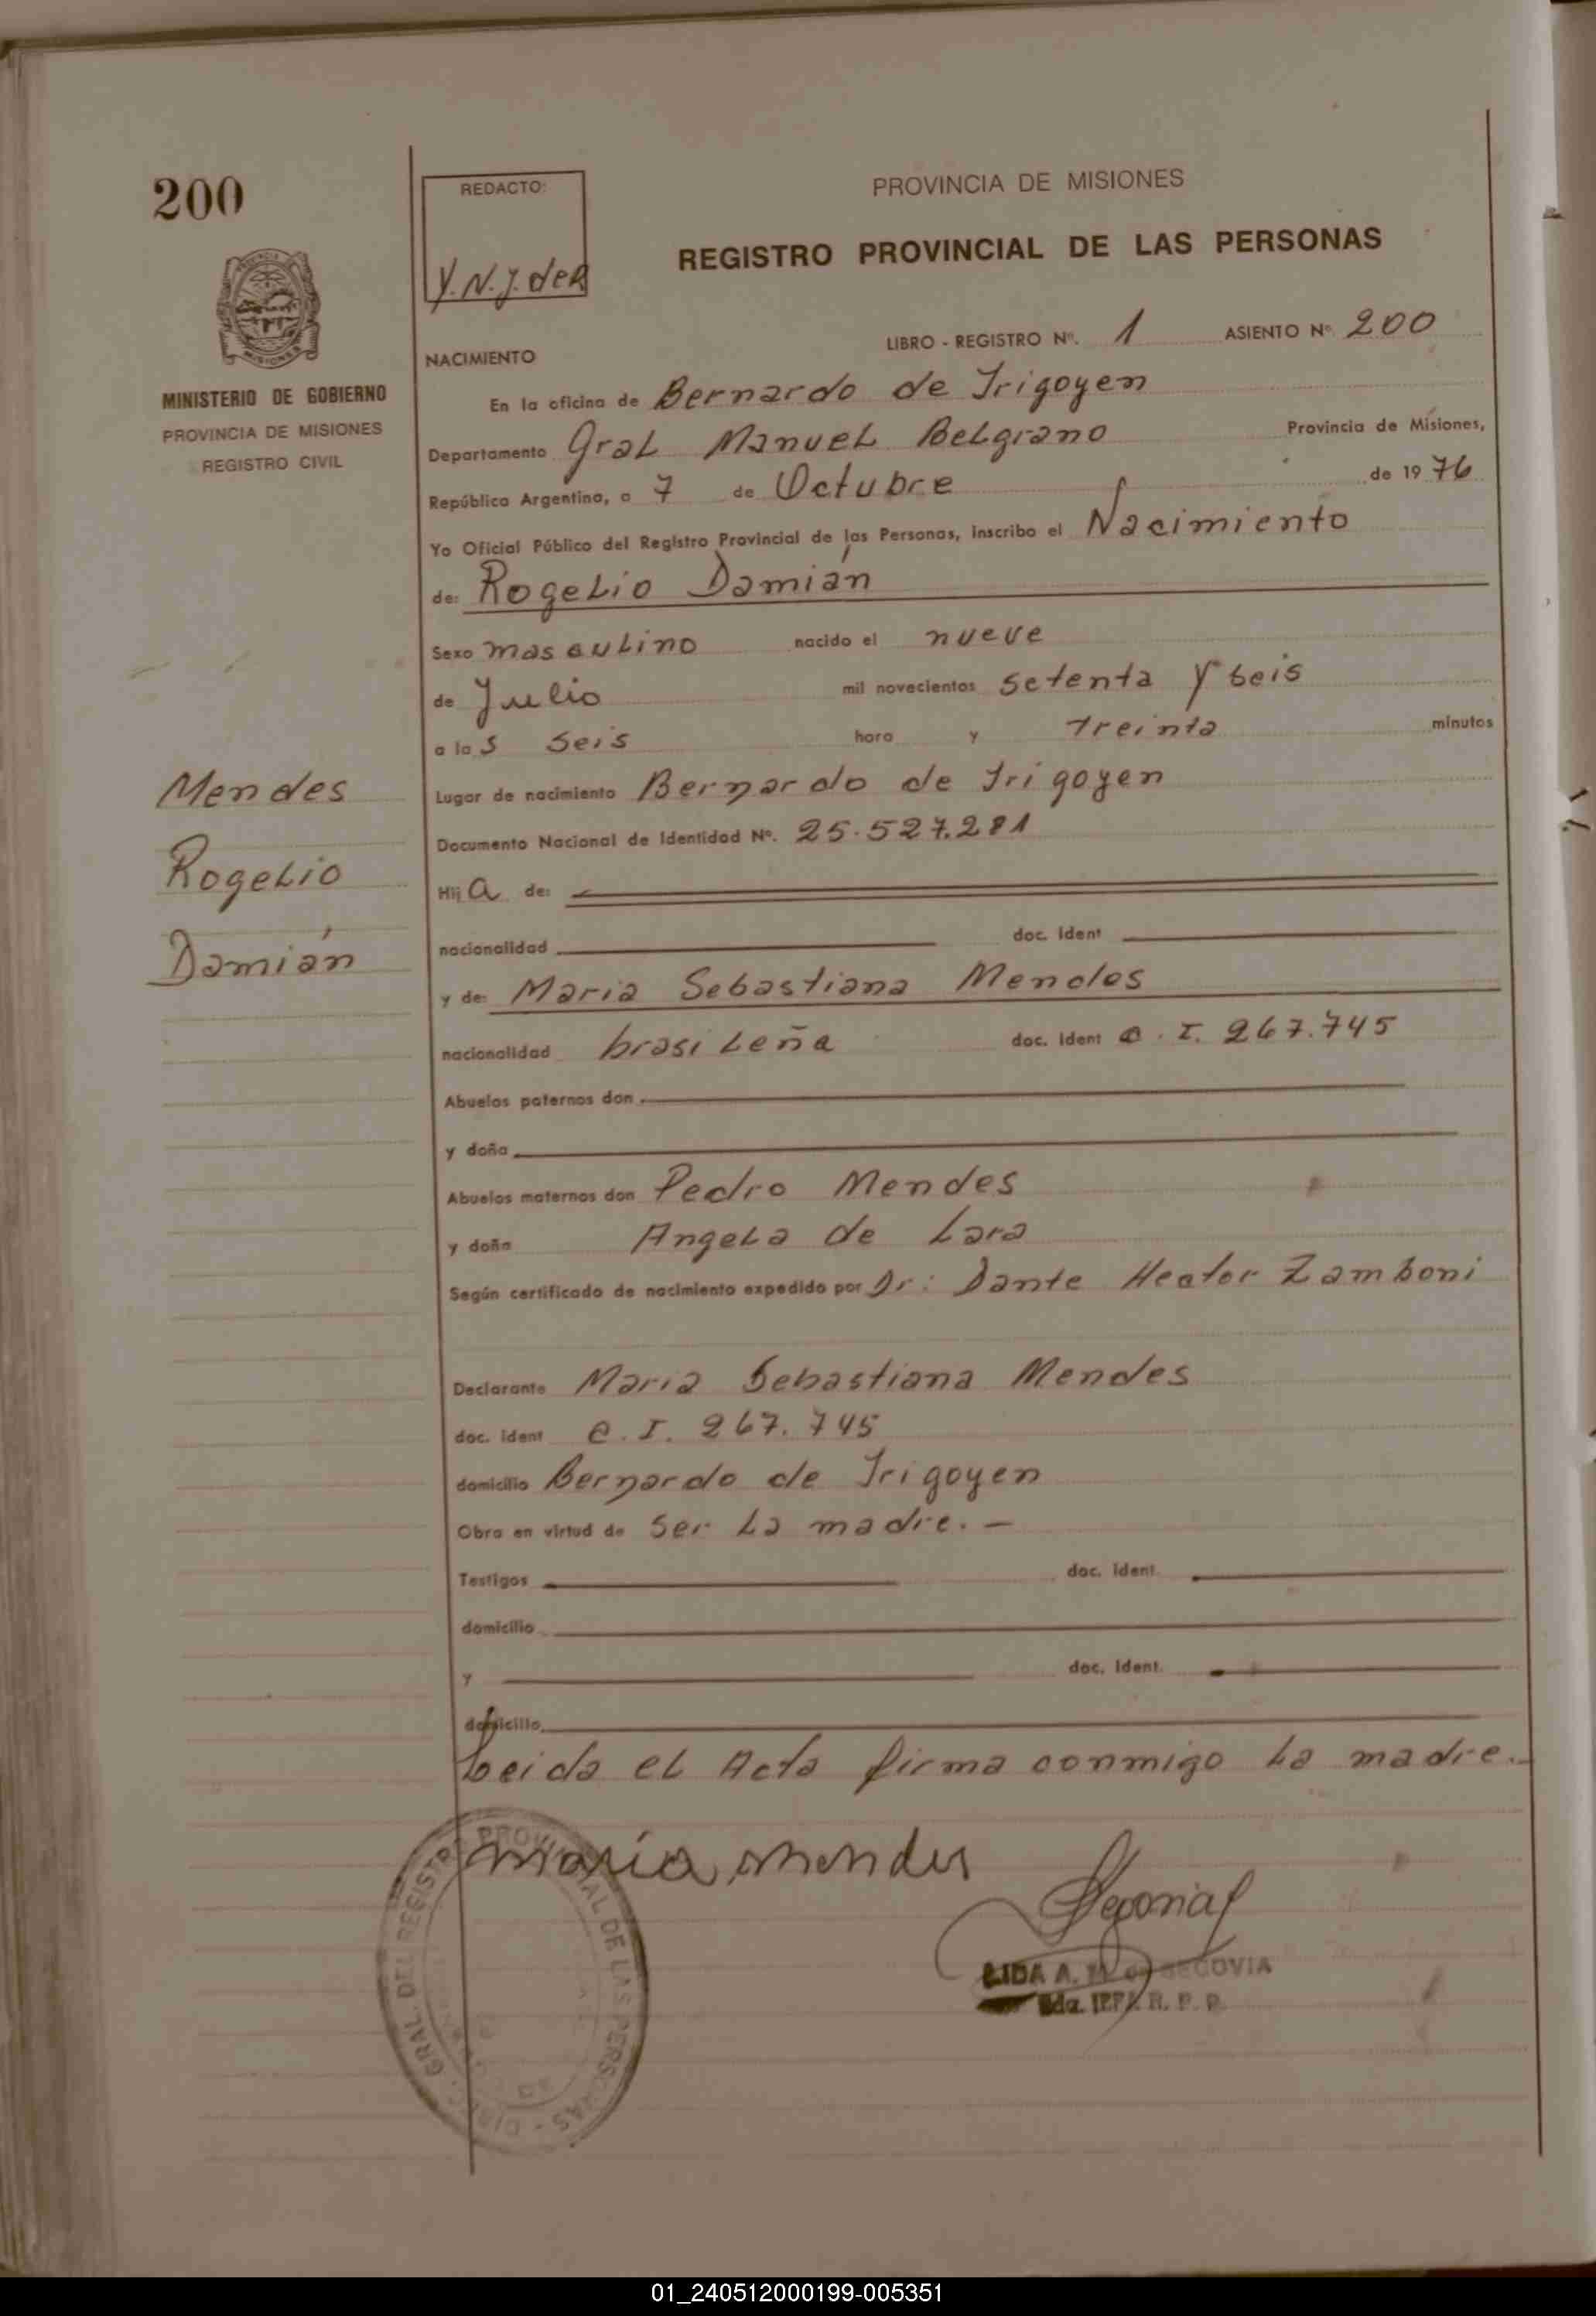 200
MINISTERIO DE GOBIERNO
PROVINCIA DE MISIONES
REGISTRO CIVIL
Mendes
Rogelio
Damián
REDACTO:
Y.N.J. der
PROVINCIA DE MISIONES
REGISTRO PROVINCIAL DE LAS PERSONAS
NACIMIENTO LIBRO - REGISTRO Nº. 1 ASIENTO Nº. 200
En la oficina de Bernardo de Irigoyen
Departamento Gral Manuel Belgrano Provincia de Misiones,
República Argentina, a 7 de Octubre de 1976
Yo Oficial Público del Registro Provincial de las Personas, inscribo el Nacimiento
de: Rogelio Damián
Sexo masculino nacido el nueve
de Julio mil novecientos setenta y seis
a las seis hora y treinta minutos
Lugar de nacimiento Bernardo de Irigoyen
Documento Nacional de Identidad Nº. 25.527.281
Hija de:
nacionalidad doc. ident
y de: Maria Sebastiana Mendes
nacionalidad brasileña doc. ident C.I. 267.745
Abuelos paternos don
y doña
Abuelos maternos don Pedro Mendes
y doña Angela de Lara
Según certificado de nacimiento expedido por Dr: Dante Hector Zamboni
Declarante Maria Sebastiana Mendes
doc. ident C.I. 267.745
domicilio Bernardo de Irigoyen
Obra en virtud de ser la madre. —
Testigos doc. ident.
domicilio
y doc. ident.
domicilio
Leida el Acta firma conmigo la madre.-
maria mendes
Segovia
LIDA A. DE SEGOVIA
R. P. P.
DIREC. GRAL. DEL REGISTRO PROVINCIAL DE LAS PERSONAS
01_240512000199-005351